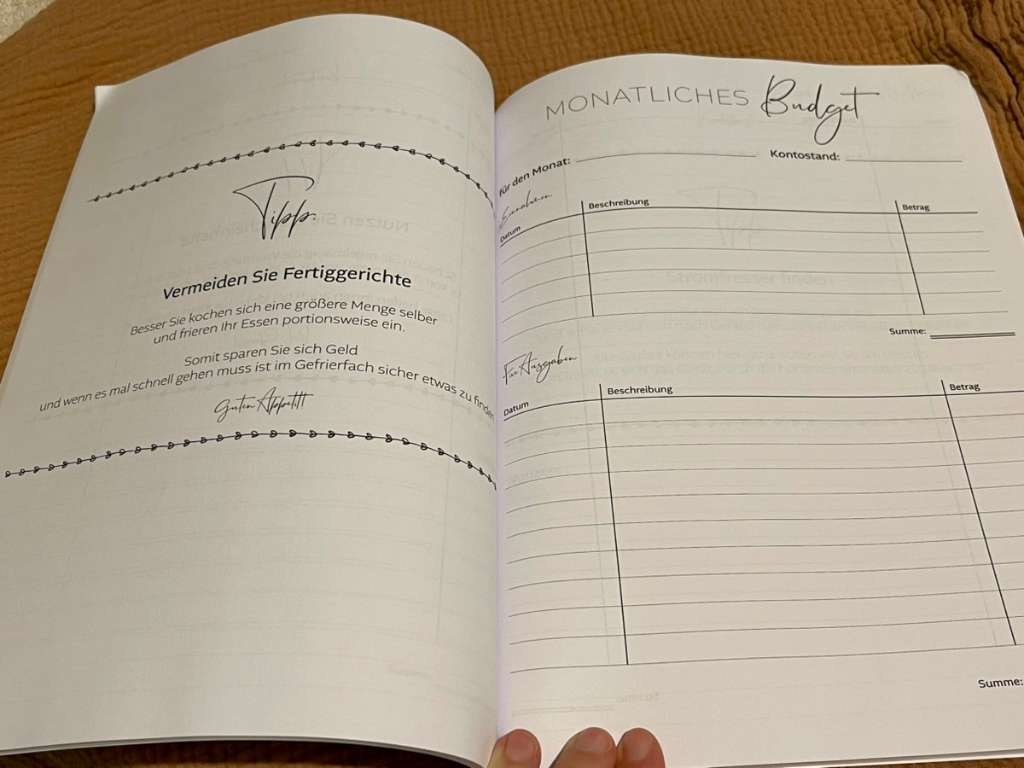 Tipp
Vermeiden Sie Fertiggerichte
Besser Sie kochen sich eine größere Menge selber
und frieren Ihr Essen portionsweise ein.
Somit sparen Sie sich Geld
und wenn es mal schnell gehen muss ist im Gefrierfach sicher etwas zu finden
Guten Appetitt
MONATLICHES Budget
für den Monat:
Kontostand:
Einnahmen
Datum
Beschreibung
Betrag
Summe:
Fixe Ausgaben
Datum
Beschreibung
Betrag
Summe: